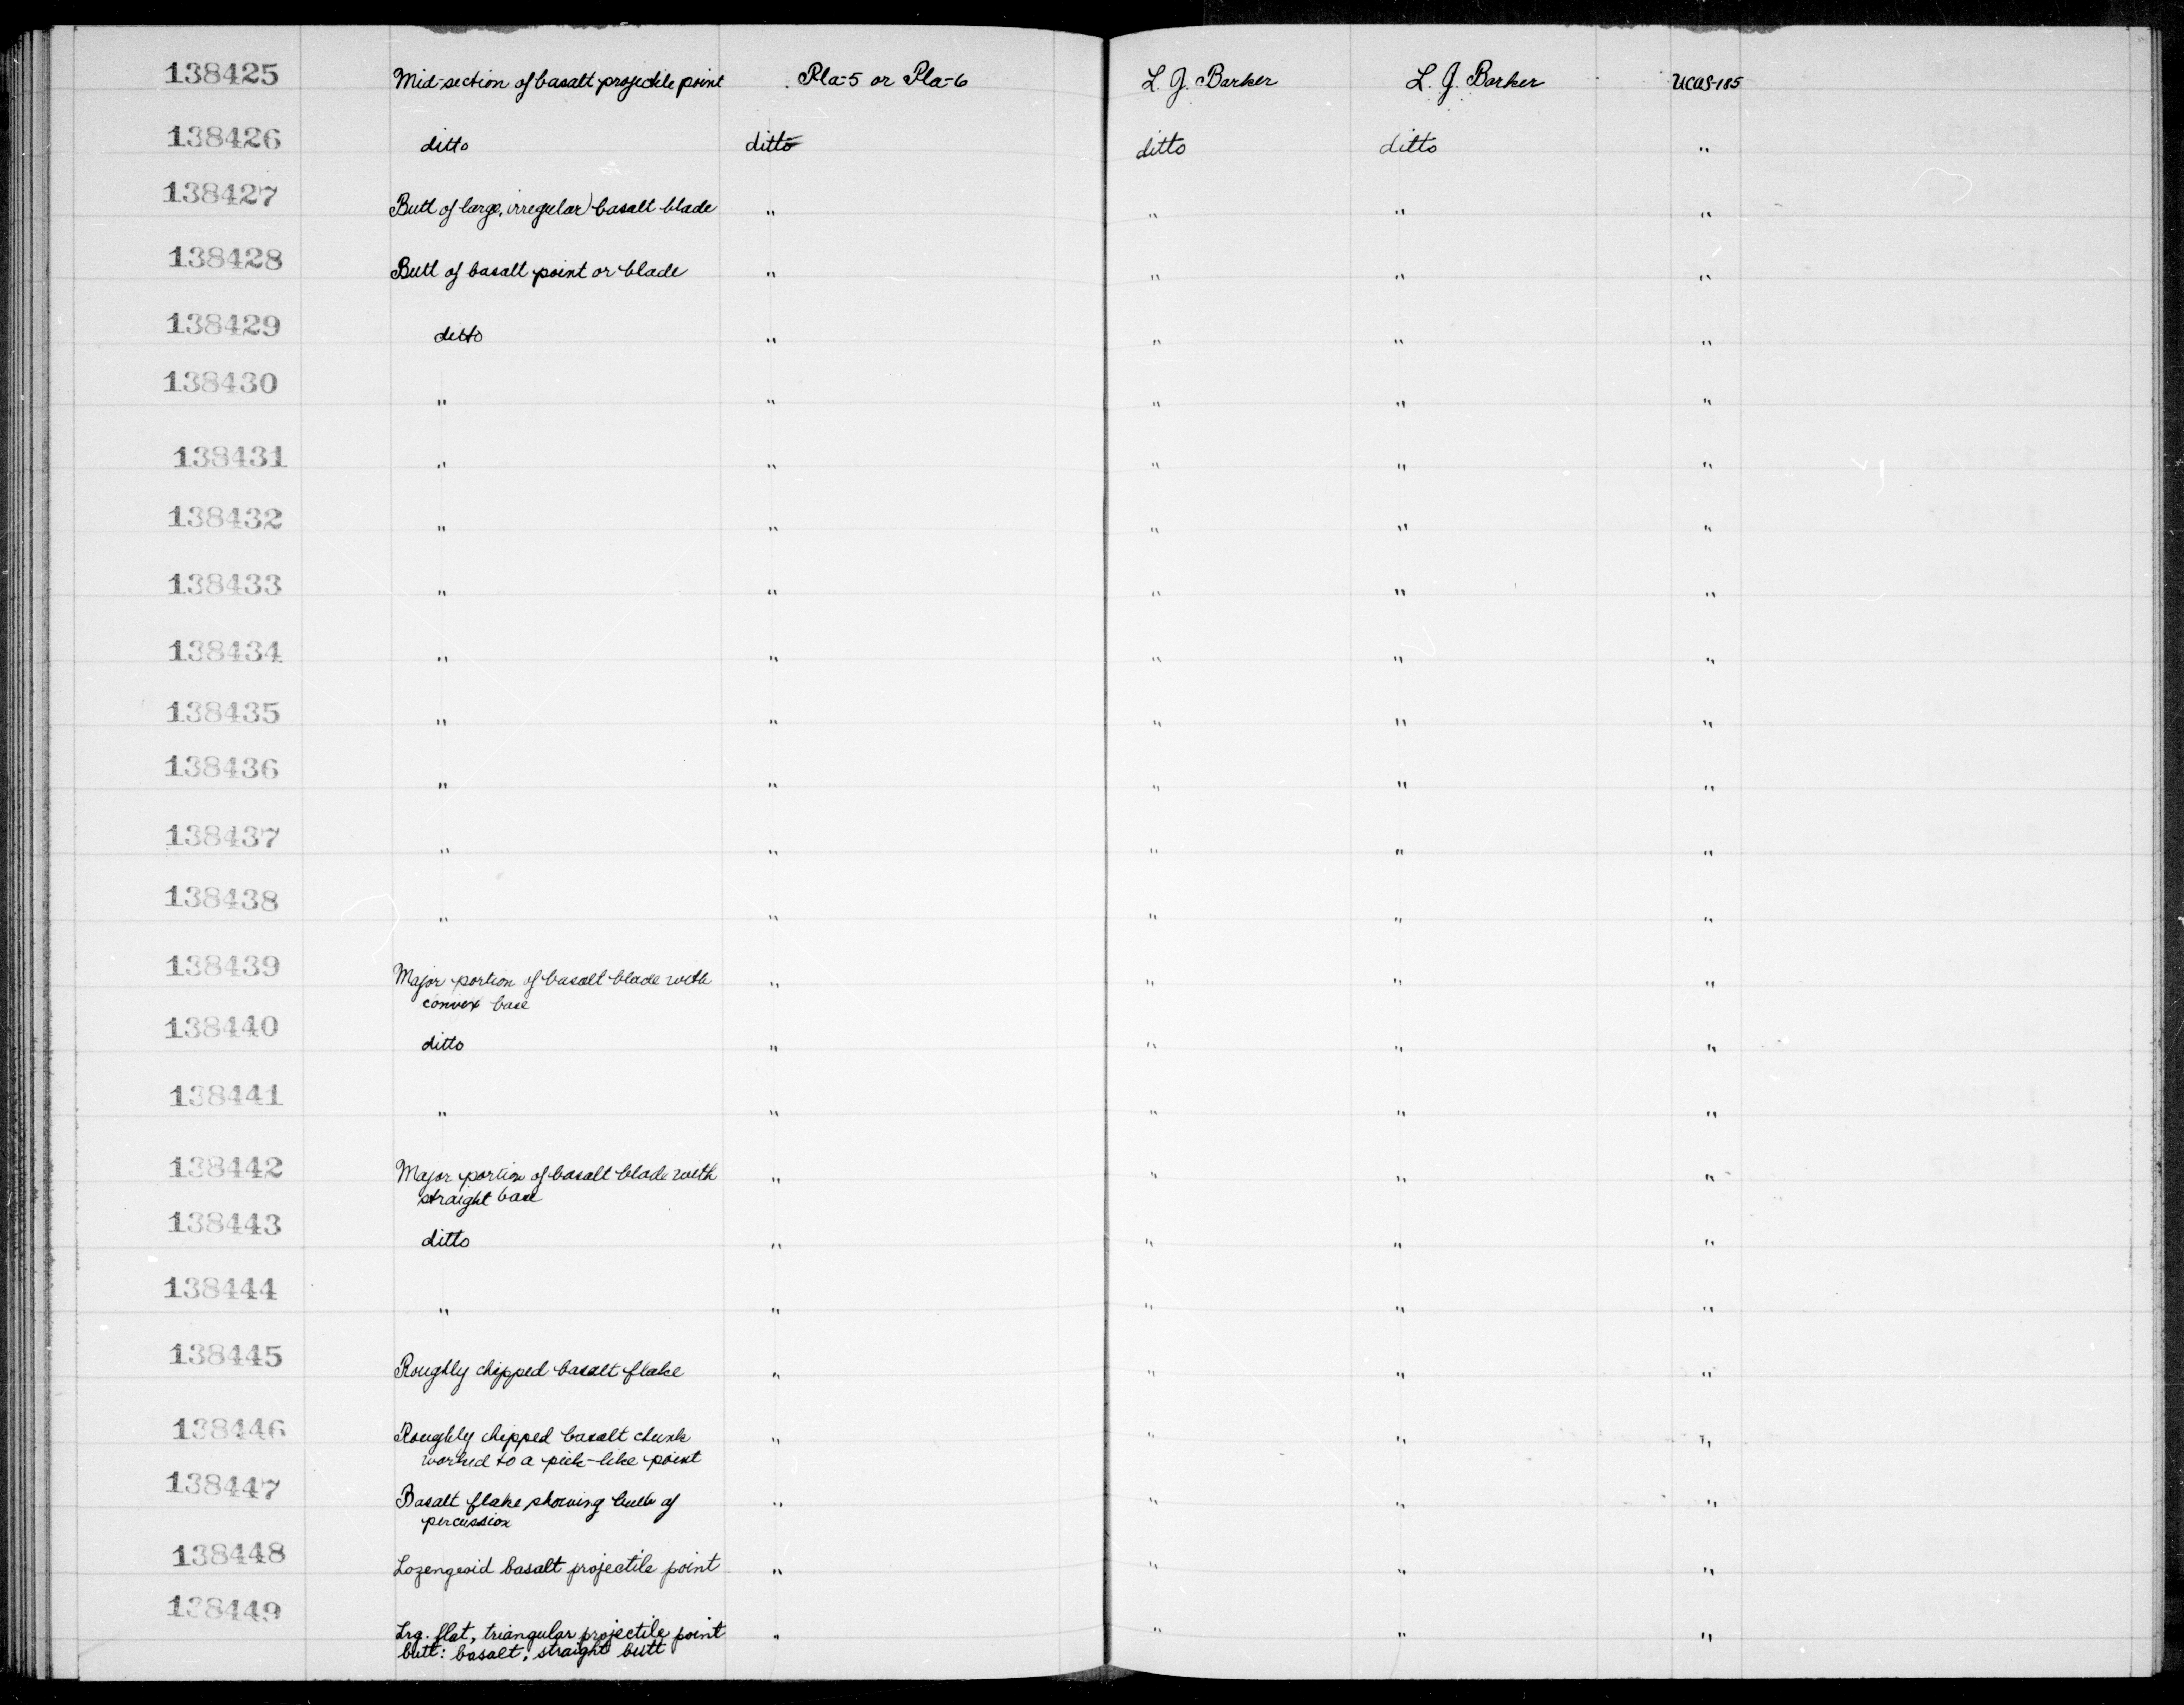 138425 Mid-section of basalt projectile point Pla-5 or Pla-6 L. J. Barker L. J. Barker UCAS-185
138426 ditto ditto ditto ditto "
138427 Butt of large, irregular) basalt blade " " " "
138428 Butt of basalt point or blade " " " "
138429 ditto " " " "
138430 " " " " "
138431 " " " " "
138432 " " " " "
138433 " " " " "
138434 " " " " "
138435 " " " " "
138436 " " " " "
138437 " " " " "
138438 " " " " "
138439 Major portion of basalt blade with " " " "
convex base
138440 ditto " " " "
138441 " " " " "
138442 Major portion of basalt blade with " " " "
straight base
138443 ditto " " " "
138444 " " " " "
138445 Roughly chipped basalt flake " " " "
138446 Roughly chipped basalt chunk " " " "
worked to a pick-like point
138447 Basalt flake showing bulb of " " " "
percussion
138448 Lozengeoid basalt projectile point " " " "
138449 Lrg. flat, triangular projectile point " " " "
butt: basalt; straight butt